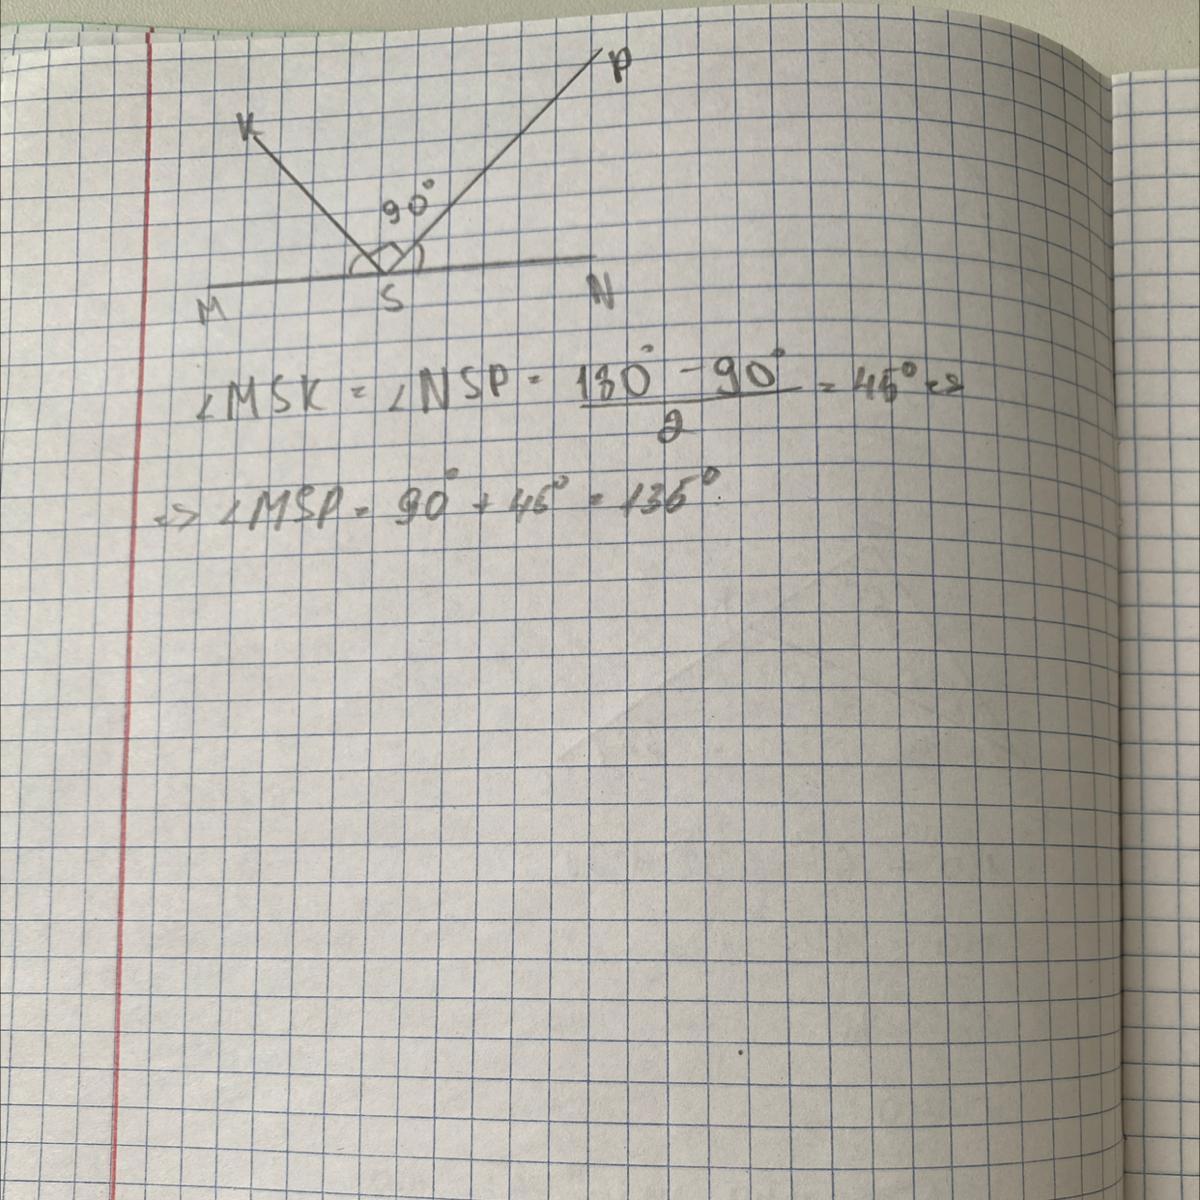 K
P
90°
M
S
N
∠MSK = ∠NSP = (180° - 90°)/2 = 45° =>
=> ∠MSP = 90° + 45° = 135°